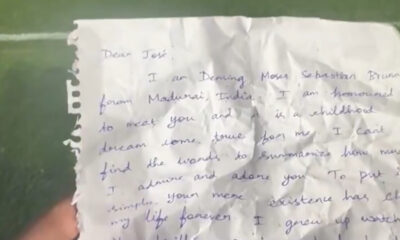 Dear José,
I am Deming Moses Sebastian
from Madurai, India. I am honoured
to meet you and it is a childhood
dream come true for me. I can't
find the words to summarize how
I admire and adore you. To put i
simple, your mere existence has ch
my life forever. I grew up watch